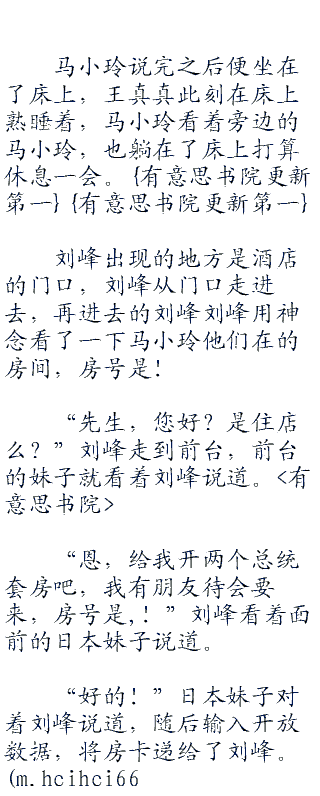 马小玲说完之后便坐在
了床上，王真真此刻在床上
熟睡着，马小玲看着旁边的
马小玲，也躺在了床上打算
休息一会。{有意思书院更新
第一}{有意思书院更新第一}
刘峰出现的地方是酒店
的门口，刘峰从门口走进
去，再进去的刘峰刘峰用神
念看了一下马小玲他们在的
房间，房号是！
“先生，您好？是住店
么？”刘峰走到前台，前台
的妹子就看着刘峰说道。<有
意思书院>
“恩，给我开两个总统
套房吧，我有朋友待会要
来，房号是,！”刘峰看着面
前的日本妹子说道。
“好的！”日本妹子对
着刘峰说道，随后输入开放
数据，将房卡递给了刘峰。
(m.hcihci66